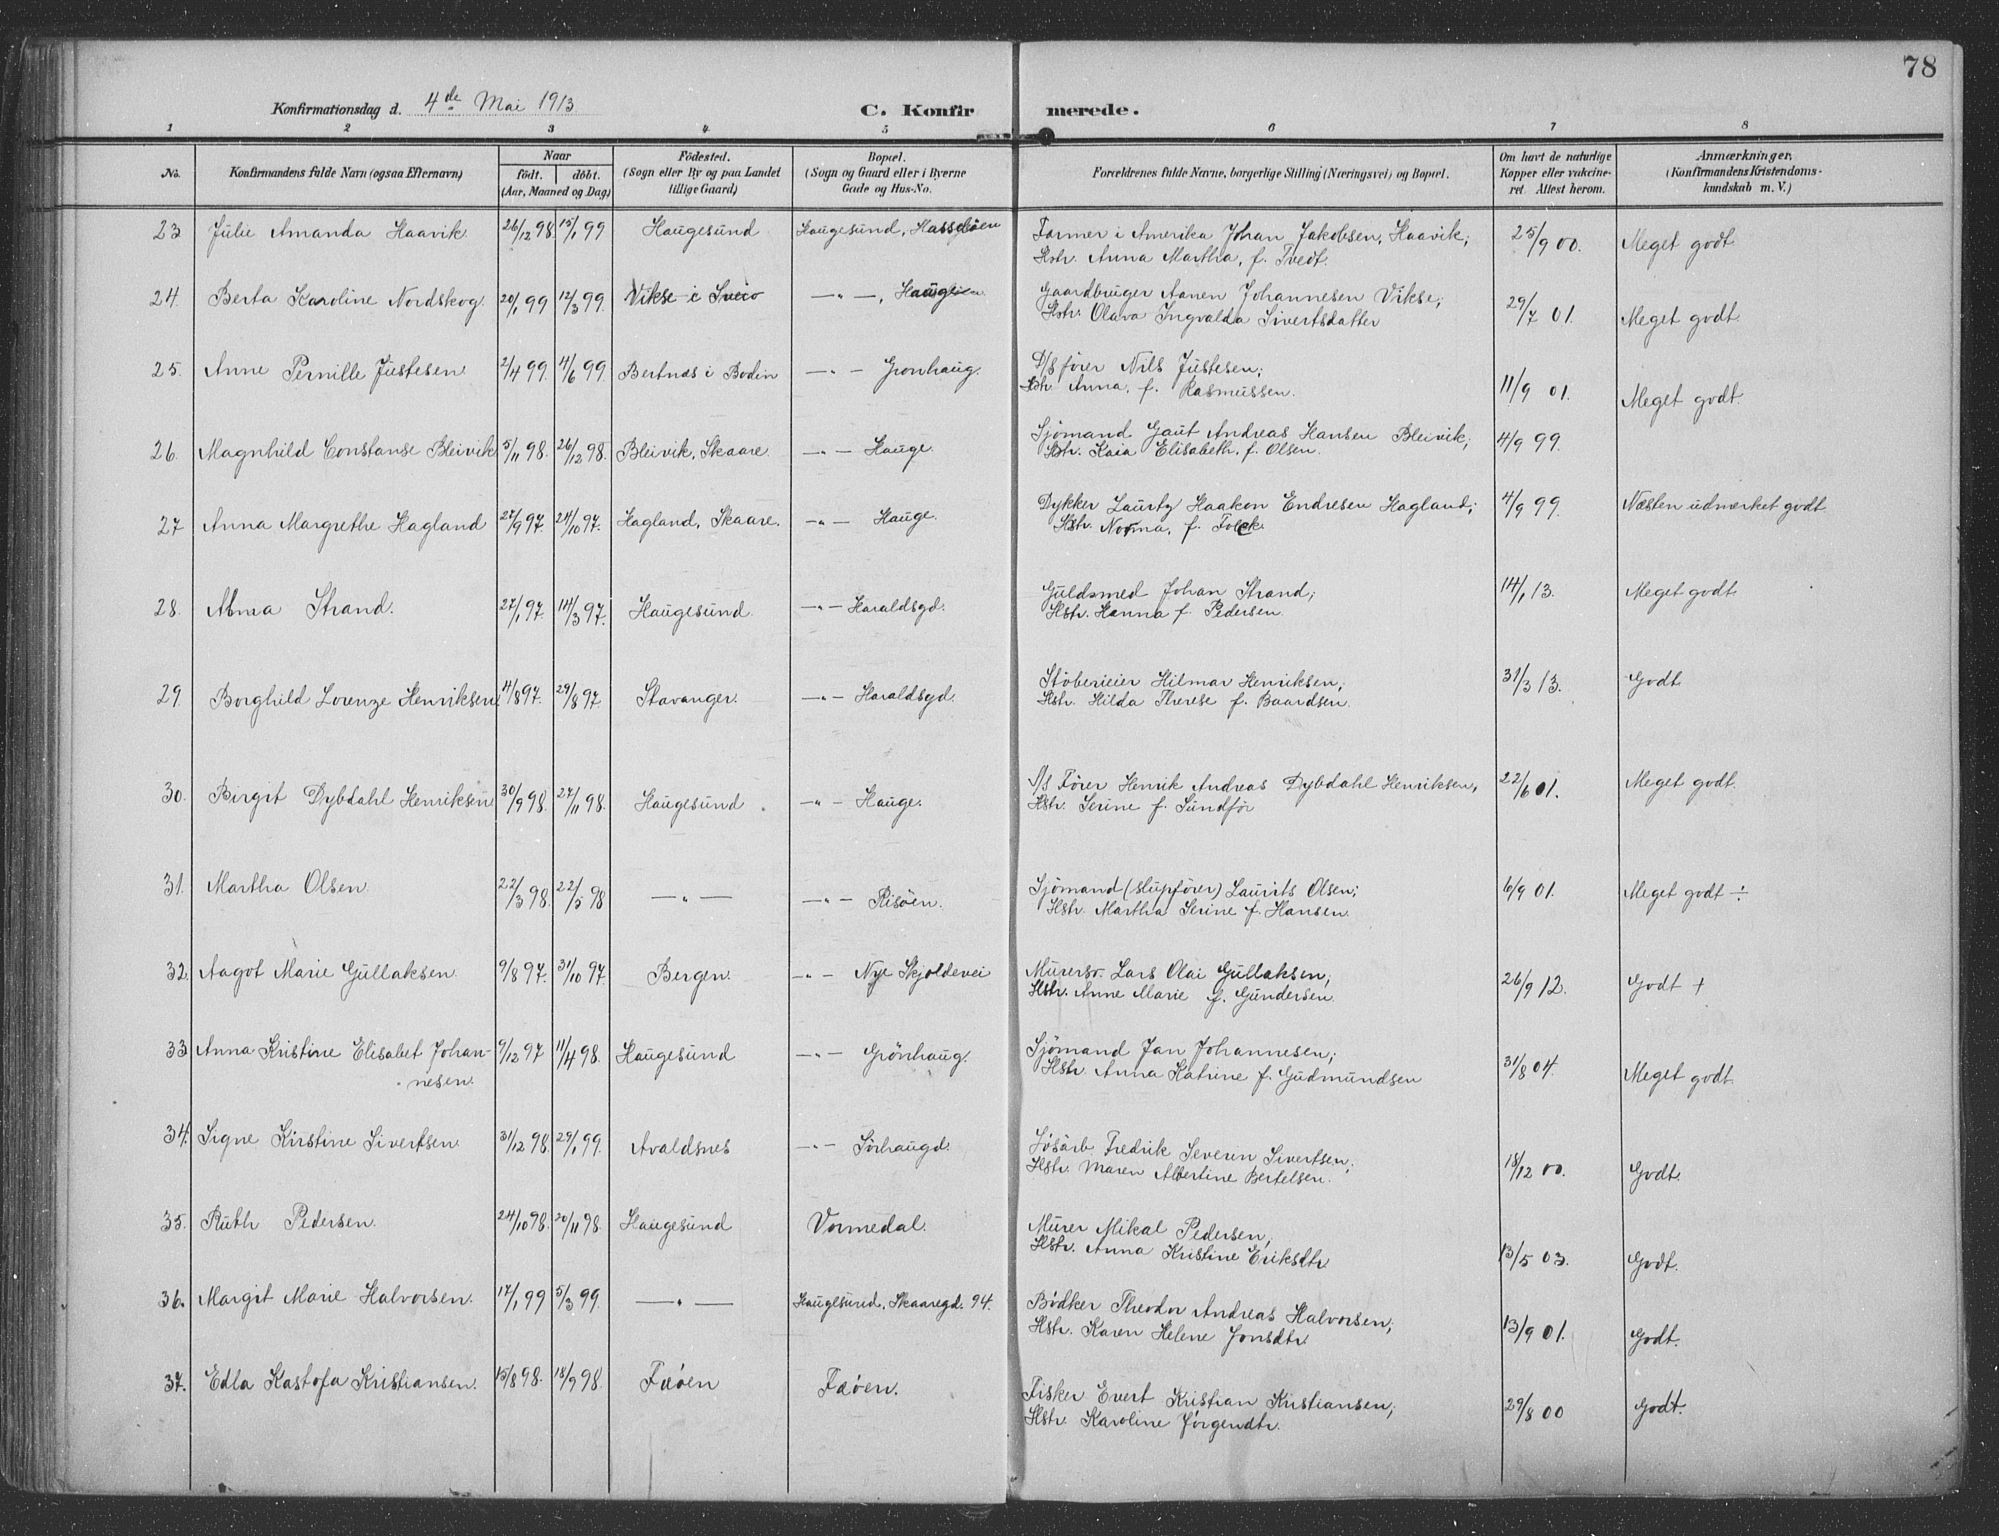 78
Konfirmationsdag d. 4de Mai 1913. C. Konfirmerede.
1 2 3 4 5 6 7 8
No. Konfirmandens fulde Navn (ogsaa Efternavn). Naar født. døbt. (Aar, Maaned og Dag) Fødested. (Sogn eller By og paa Landet tillige Gaard) Bopæl. (Sogn og Gaard eller i Byerne Gade og Hus-No. Forældrenes fulde Navne, borgerlige Stilling (Næringsvei) og Bopæl. Om havt de naturlige Kopper eller vakcineret. Attest herom. Anmærkninger. (Konfirmandens Kristendomskundskab m. V.)
23 Julie Amanda Haavik 26/12 98. 15/1 99 Haugesund Haugesund, Hasseløen Farmer i Amerika Johan Jakobsen, Haavik; 25/9 00. Meget godt
Hstr. Anna Martha, f. Tvedt.
24. Berta Karoline Nordskog. 20/1 99 12/3 99. Vikse i Sveio —"—, Hauge Gaardbruger Aanen Johannesen Vikse; 29/7 01. Meget godt.
Hstr. Olava Ingvalda Sivertsdatter
25. Anne Pernille Justesen 2/4 99. 4/6 99. Bertnæs i Bodin —"— Grønhaug. D/S fører Nils Justesen; 11/9 01. Meget godt.
Hstr. Anna, f. Rasmussen.
26. Magnhild Constanse Bleivik 5/11 98. 26/12 98. Bleivik, Skaare. —"— Hauge. Sjømand Gaut Andreas Hansen Bleivik; 4/9 99.
Hstr. Kaia Elisabeth, f. Olsen.
27 Anna Margrethe Hagland 27/9 97. 24/10 97. Hagland, Skaare. —"— Hauge. Dykker Lauritz Haakon Endresen Hagland; 4/9 99. Næsten udmærket godt
Hstr. Norma, f.
28. Alma Strand. 27/1 97. 14/3 97. Haugesund. —"— Haraldsgd. Guldsmed Johan Strand; 14/1 13. Meget godt
Hstr. Hanna f. Pedersen.
29. Borghild Lorenze Henriksen 4/8 97. 29/8 97 Stavanger. —"— Haraldsgd. Støberieier Hilmar Henriksen; 31/3 13. Godt
Hstr. Hilda Therese f. Baardsen.
30. Birgit Dybdahl Henriksen 30/9 98. 27/11 98. Haugesund —"— Hauge. S/S Fører Henrik Andreas Dybdahl Henriksen, 22/6 01. Meget godt.
Hstr. Serine f. Sundfør
31. Martha Olsen. 22/3 98. 22/5 98 —"— —"— Risøen. Sjømand (slupfører) Laurits Olsen; 6/9 01. Meget godt ÷
Hstr. Martha Serine f. Hansen.
32. Aagot Marie Gullaksen. 9/8 97. 31/10 97. Bergen. —"— Nye Skjoldevei Murersv. Lars Olai Gullaksen; 26/9 12. Godt +
Hstr. Anne Marie f. Gundersen.
33. Anna Kristine Elisabet Johan- 9/12 97 11/4 98. Haugesund —"— Grønhaug. Sjømand Jan Johannesen; 31/8 04. Meget godt.
nesen. Hstr. Anna Katrine f. Gudmundsen
34. Signe Kirstine Sivertsen. 31/12 98. 29/1 99. Avaldsnes —"— Sørhaugd. Løsarb Fredrik Severin Sivertsen; 18/12 00. Godt.
Hstr. Maren Albertine Bertelsen.
35. Ruth Pedersen. 24/10 98. 20/11 98. Haugesund Vormedal. Murer Mikal Pedersen; 13/5 03. Godt.
Hstr. Anna Kristine Eriksdtr
36. Margit Marie Halvorsen. 17/1 99 5/3 99. —"— Haugesund, Skaaregd. 94. Bødker Theodor Andreas Halvorsen; 13/9 01. Godt.
Hstr. Karen Helene Jonsdtr
37. Edla Kastofa Kristiansen. 15/8 98. 18/9 98. Fæøen Fæøen. Fisker Evert Kristian Kristiansen; 29/8 00 Godt.
Hstr. Karoline Jørgendtr.